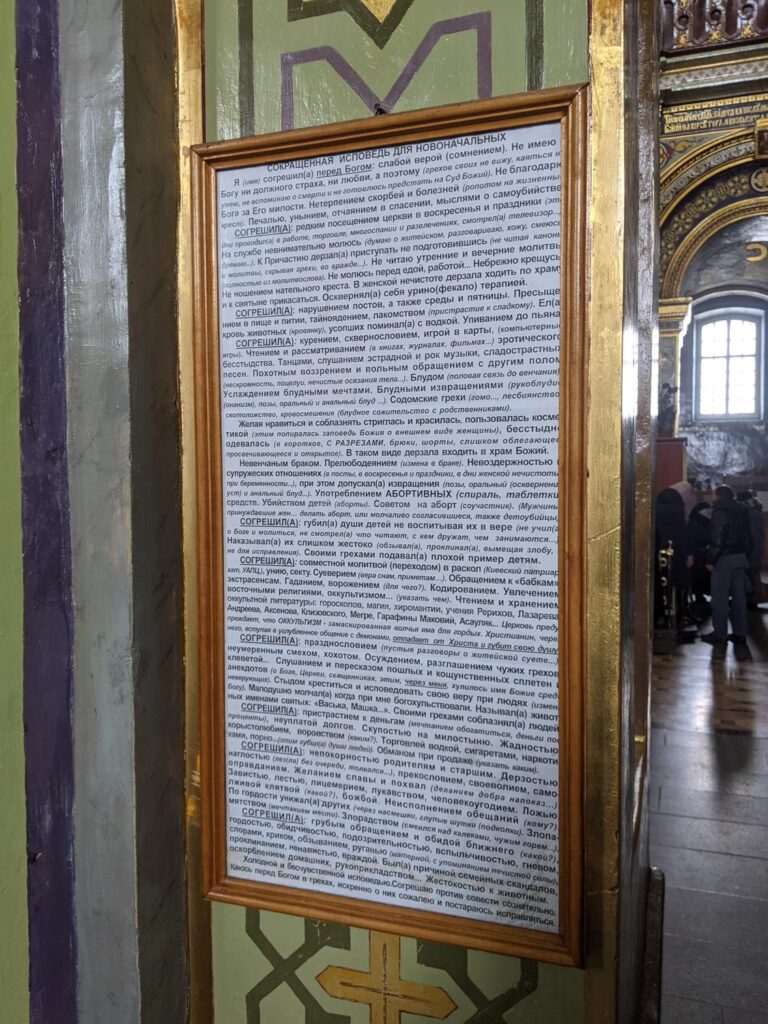 СОКРАЩЕННАЯ ИСПОВЕДЬ ДЛЯ НОВОНАЧАЛЬНЫХ
Я (имя) согрешил(а) перед Богом: слабой верой (сомнением). Не имею к
Богу ни должного страха, ни любви, а поэтому (грехов своих не вижу, каяться н
умею, не вспоминаю о смерти и не готовлюсь предстать на Суд Божий). Не благодарю
Бога за Его милости. Нетерпением скорбей и болезней (ропотом на жизненны
крест). Печалью, унынием, отчаянием в спасении, мыслями о самоубийстве
СОГРЕШИЛ(А): редким посещением церкви в воскресенья и праздники (эти
дни проводил(а) в работе, торговле, многоспании и развлечениях, смотрел(а) телевизор...
На службе невнимательно молюсь (думаю о житейском, разговариваю, хожу, смеюсь
дремаю...). К Причастию дерзал(а) приступать не подготовившись (не читая каноны
и молитвы, скрывая грехи, во вражде...). Не читаю утренние и вечерние молитвы
(полностью из молитвослова). Не молюсь перед едой, работой... Небрежно крещусь
Не ношением нательного креста. В женской нечистоте дерзала ходить по храму
и к святыне прикасаться. Осквернял(а) себя урино(фекало) терапией.
СОГРЕШИЛ(А): нарушением постов, а также среды и пятницы. Пресыще
нием в пище и питии, тайноядением, лакомством (пристрастие к сладкому). Ел(а)
кровь животных (кровянку), усопших поминал(а) с водкой. Упиванием до пьяна
СОГРЕШИЛ(А): курением, сквернословием, игрой в карты, (компьютерны
игры). Чтением и рассматриванием (в книгах, журналах, фильмах...) эротического
бесстыдства. Танцами, слушанием эстрадной и рок музыки, сладострастных
песен. Похотным воззрением и вольным обращением с другим полом
(нескромность, поцелуи, нечистые осязания тела...). Блудом (половая связь до венчания)
Услаждением блудными мечтами. Блудными извращениями (рукоблудие
(онанизм), позы, оральный и анальный блуд ...). Содомские грехи (гомо..., лесбиянство
скотоложство, кровосмешение (блудное сожительство с родственниками).
Желая нравиться и соблазнять стриглась и красилась, пользовалась косме
тикой (этим попиралась заповедь Божия о внешнем виде женщины), бесстыдно
одевалась (в короткое, С РАЗРЕЗАМИ, брюки, шорты, слишком облегающее
просвечивающееся и открытое). В таком виде дерзала входить в храм Божий.
Невенчаным браком. Прелюбодеянием (измена в браке). Невоздержностью
супружеских отношениях (в посты, в воскресенья и праздники, в дни женской нечистоты
при беременности...), при этом допускал(а) извращения (позы, оральный (осквернени
уст) и анальный блуд...). Употреблением АБОРТИВНЫХ (спираль, таблетки
средств. Убийством детей (аборты). Советом на аборт (соучастник). (Мужчины
принуждавшие жен... делать аборт, или молчаливо согласившиеся, также детоубийцы)
СОГРЕШИЛ(А): губил(а) души детей не воспитывая их в вере (не учил(а
о Боге и молиться, не смотрел(а) что читают, с кем дружат, чем занимаются...)
Наказывал(а) их слишком жестоко (обзывал(а), проклинал(а), вымещая злобу,
не для исправления). Своими грехами подавал(а) плохой пример детям.
СОГРЕШИЛ(А): совместной молитвой (переходом) в раскол (Киевский патриар
хат, УАПЦ), унию, секту. Суеверием (вера снам, приметам...). Обращением к «бабкам»
экстрасенсам. Гаданием, ворожением (для чего?). Кодированием. Увлечением
восточными религиями, оккультизмом... (указать чем). Чтением и хранением
оккультной литературы: гороскопов, магии, хиромантии, учения Рерихов, Лазарева
Андреева, Аксенова, Клизовского, Мегре, Гарафины Маковий, Асауляк... Церковь преду
преждает, что ОККУЛЬТИЗМ - замаскированная волчья яма для гордых. Христианин, чере
него, вступая в углубленное общение с демонами, отпадает от Христа и губит свою душу
СОГРЕШИЛ(А): празднословием (пустые разговоры о житейской суете...)
неумеренным смехом, хохотом. Осуждением, разглашением чужих грехов
клеветой... Слушанием и пересказом пошлых и кощунственных сплетен и
анекдотов (о Боге, Церкви, священниках, этим, через меня, хулилось имя Божие среди
неверующих). Стыдом креститься и исповедовать свою веру при людях (измен
Богу). Малодушно молчал(а) когда при мне богохульствовали. Называл(а) живот
ных именами святых: «Васька, Машка...». Своими грехами соблазнял(а) людей
СОГРЕШИЛ(А): пристрастием к деньгам (мечтанием обогатиться, деньги под
проценты), неуплатой долгов. Скупостью на милостыню. Жадностью
корыстолюбием, воровством (каким?). Торговлей водкой, сигретами, наркоти
ками, порно...(этим губил(а) души людей). Обманом при продаже (указать каким).
СОГРЕШИЛ(А): непокорностью родителям и старшим. Дерзостью
наглостью (лез(ла) без очереди, толкался...), прекословием, своволием, само
оправданием. Желанием славы и похвал (деланием добра напоказ...)
Завистью, лестью, лицемерием, лукавством, человекоугодием. Ложью
лживой клятвой (какой?), божбой. Неисполнением обещаний (кому?).
По гордости унижал(а) других (через насмешки, глупые шутки (подколки). Злопа-
мятством (мечтанием мести). Злорадством (смеялся над калеками, чужим горем..).
СОГРЕШИЛ(А): грубым обращением и обидой ближнего (какой?),
гордостью, обидчивостью, подозрительностью, вспыльчивостью, гневом,
спорами, криком, обзыванием, руганью (матерной, с упоминанием нечистой силы),
проклинанием, ненавистью, враждой. Был(а) причиной семейных скандалов,
оскорблением домашних, рукоприкладством... Жестокостью к животным.
Холодной и бесчувственной исповедью.Согрешаю против совести сознательно.
Каюсь перед Богом в грехах, искренно о них сожалею и постараюсь исправляться.